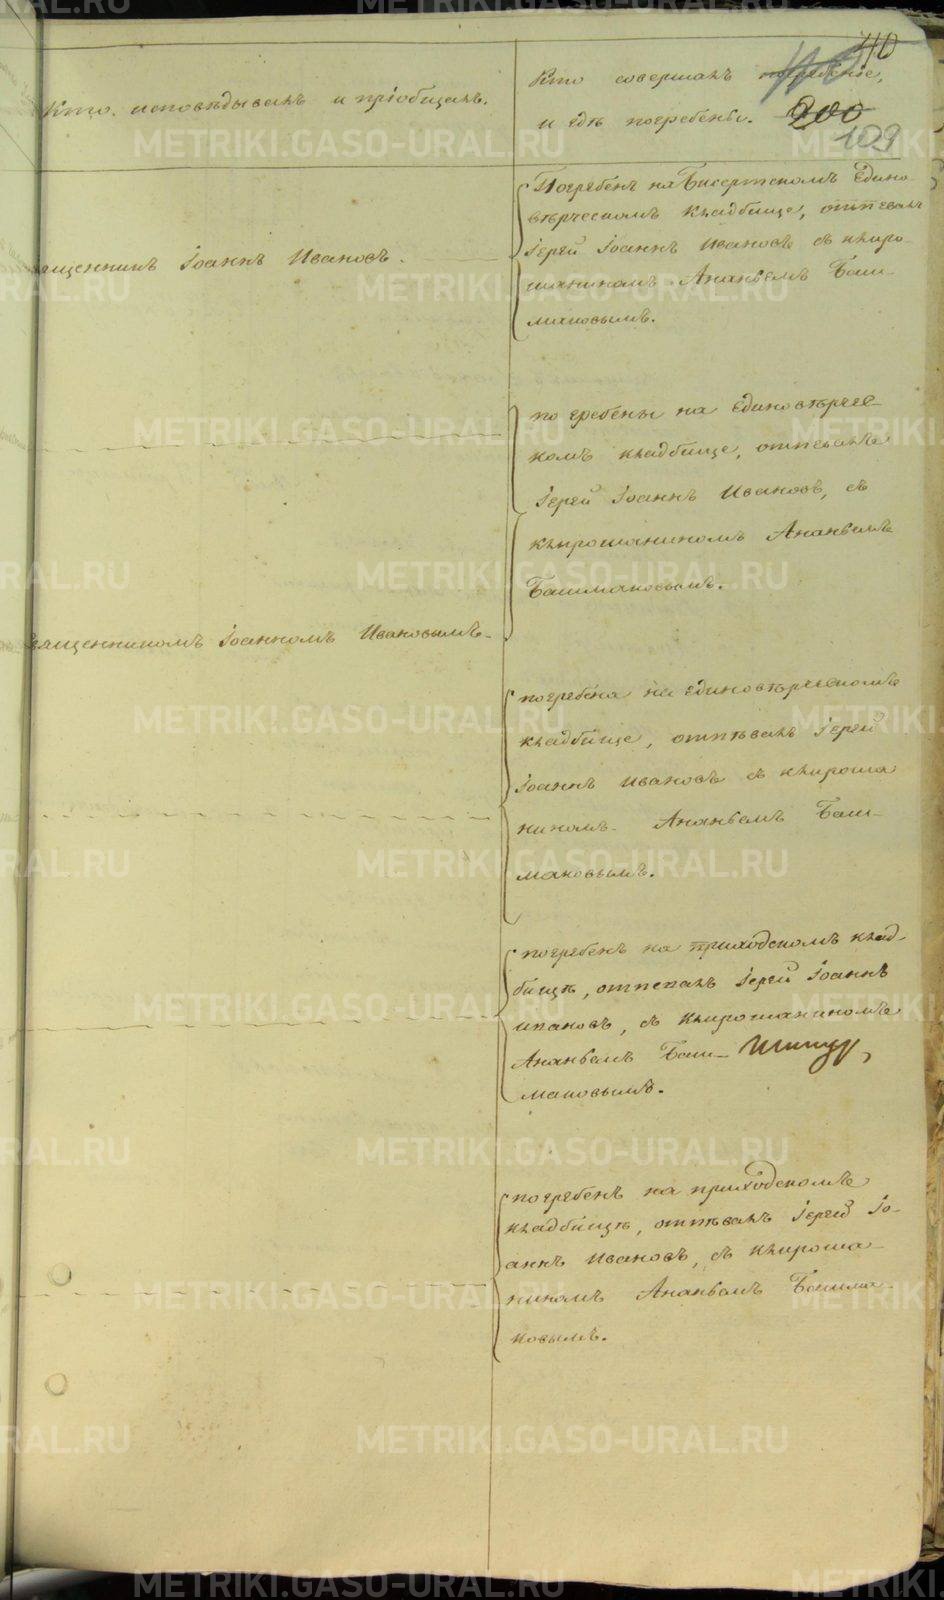 110
Кто исповѣдывалъ и пріобщалъ.
Кто совершалъ погребеніе,
и гдѣ погребены.
200
109
Погребенъ на Бисертскомъ Едино-
вѣрческомъ кладбище, отпевалъ
Іерей Іоаннъ Ивановъ съ клиро-
шаниномъ Ананьемъ Баш-
маковымъ.
ященникъ Іоаннъ Ивановъ.
погребены на Единовѣрчес-
комъ кладбище, отпевалъ
Іерей Іоаннъ Ивановъ, съ
клирошаниномъ Ананьемъ
Башмаковымъ.
священникомъ Іоанномъ Ивановымъ
погребена на единовѣрческомъ
кладбище, отпѣвалъ Іерей
Іоаннъ Ивановъ съ клироша
ниномъ Ананьемъ Баш-
маковымъ.
погребенъ на приходскомъ клад-
бищѣ, отпевалъ Іерей Іоаннъ
Ивановъ, съ клирошаниномъ
Ананьемъ Баш-
маковымъ.
погребенъ на приходскомъ
кладбищѣ, отпѣвалъ Іерей Іо-
аннъ Ивановъ, съ клироша-
ниномъ Ананьемъ Башма-
ковымъ.
METRIKI.GASO-URAL.RU